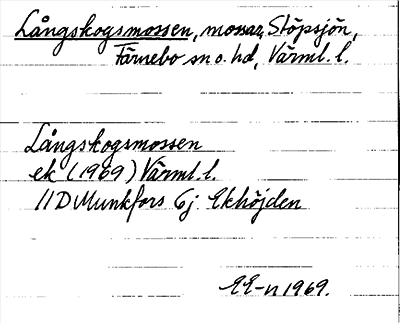 Långskogsmossen, mossar, Stöpsjön,
Färnebo sn o. hd, Värml. l.
Långskogsmossen
ek (1969) Värml. l.
11D Munkfors 6j Ekhöjden
EE-n 1969.